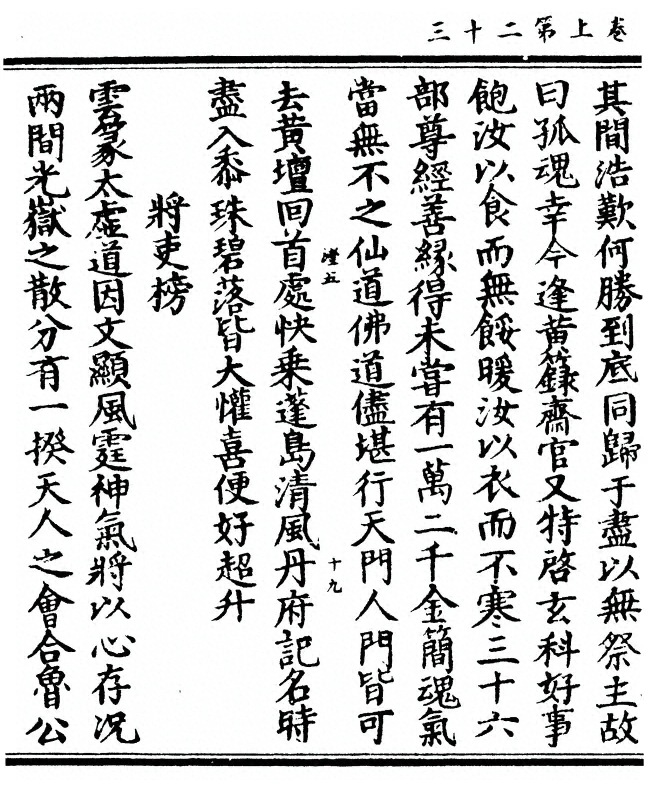 卷上第二十三
其間浩歎何勝到底同歸于盡以無祭主故
曰孤魂幸今逢黄籙齋官又特啓玄科好事
飽汝以食而無餒暖汝以衣而不寒三十六
部尊經善緣得未甞有一萬二千金簡魂氣
當無不之仙道佛道儘堪行天門人門皆可
去黄壇回首處快乘蓬島清風丹府記名時
盡入黍珠碧落皆大懽喜便好超升
將吏榜
雲篆太虛道因文顯風霆神氣將以心存況
兩間光嶽之散分有一揆天人之會合魯公
五
十九